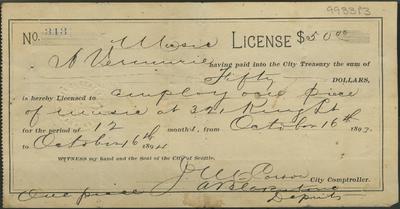 993353
No. 313 Music LICENSE $50 00
having paid into the City Treasury the sum of
Fifty DOLLARS,
is hereby Licensed to employ one piece
of music at 321 King St
for the period of 12 months, from October 16th 189
to October 16th 1894
WITNESS my hand and the Seal of the City of Seattle.
City Comptroller.
One piece Deputy